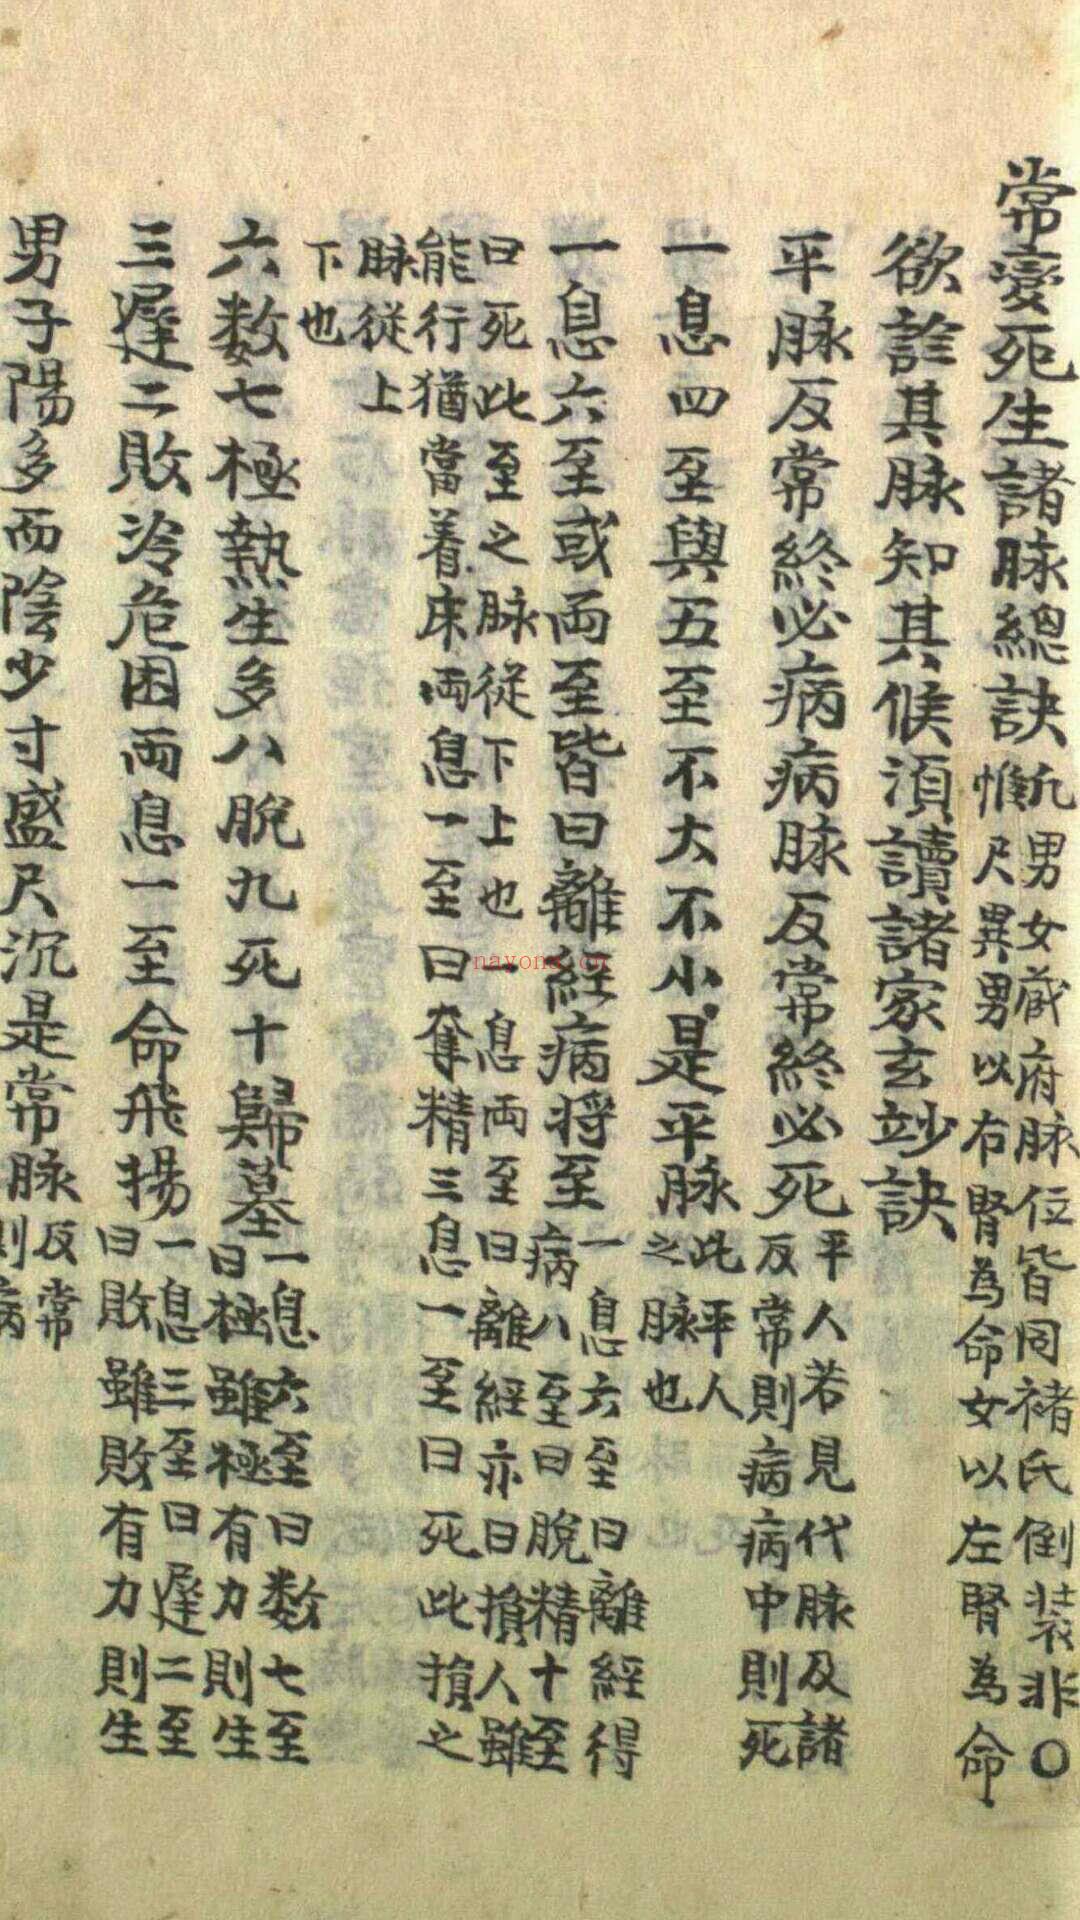 常變死生諸脉總訣
凡男女藏府脉位皆同褚氏倒装非〇
惟尺異男以右腎為命女以左腎為命
欲診其脉知其候湏讀諸家玄妙訣
平脉反常終必病病脉反常終必死
平人若見代脉及諸
反常則病病中則死
一息四至與五至不大不小是平脉
此平人
之脉也
一息六至或両至皆曰離經病将至
一息六至曰離經得
病八至曰脫精十至
曰死此至之脉從下上也一息両至曰離經亦曰損人雖
能行猶當着床両息一至曰奪精三息一至曰死此損之
脉從上
下也
六数七極熱生多八脫九死十歸墓
一息六至曰数七至
曰極雖極有力則生
三遲二敗冷危困両息一至命飛揚
一息三至曰遲二至
曰敗雖敗有力則生
男子陽多而陰少寸盛尺沉是常脉
反常
則病
nayona.cn